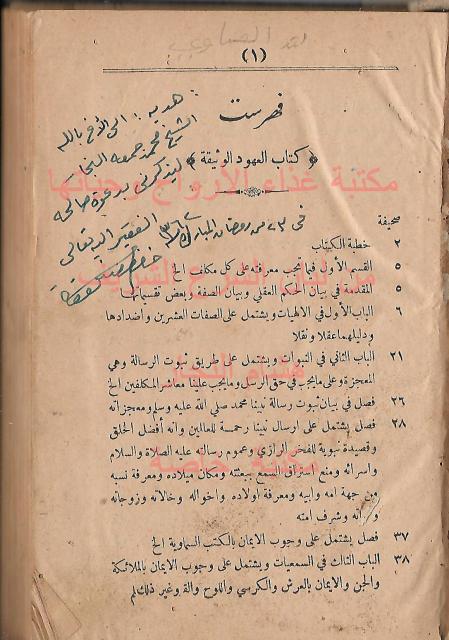 (١)
فهرست
﴿ كتاب العهود الوثيقة ﴾
هدية : الى الأخ بالله
الشيخ محمد جمعه
ليذكرني بدعوة صالحة
في ٢٣ من رمضان المبارك ١٣٦٢
الفقير اليه تعالى
مكتبة غذاء الأرواح وحياتها
صحيفة
٢ خطبة الكتاب
٥ القسم الأول فيما تجب معرفته على كل مكلف الخ
٥ المقدمة في بيان الحكم العقلي وبيان الصفة وبعض تقسيماتها
٦ الباب الأول في الالهيات ويشتمل على الصفات العشرين واضدادها
ودليلهما عقلا ونقلا
٢١ الباب الثاني في النبوات ويشتمل على طريق ثبوت الرسالة وهي
المعجزة وعلى مايجب في حق الرسل ومايجب علينا معاشر المكلفين الخ
٢٦ فصل في بيان ثبوت رسالة نبينا محمد صلى الله عليه وسلم ومعجزاته
٢٨ فصل يشتمل على ارسال نبينا رحمة للعالمين وانه أفضل الخلق
وقصيدة نبوية للفخر الرازي وعموم رسالته عليه الصلاة والسلام
واسرائه ومنع استراق السمع ببعثته ومكان ميلاده ومعرفة نسبه
من جهة امه وابيه ومعرفة اولاده واخواله وخالاته وزوجاته
وشرف امته
٣٧ فصل يشتمل على وجوب الايمان بالكتب السماوية الخ
٣٨ الباب الثالث في السمعيات ويشتمل على وجوب الايمان بالملائكة
والجن والايمان بالعرش والكرسي واللوح والقلم وغير ذلك
مكتبة خاصة